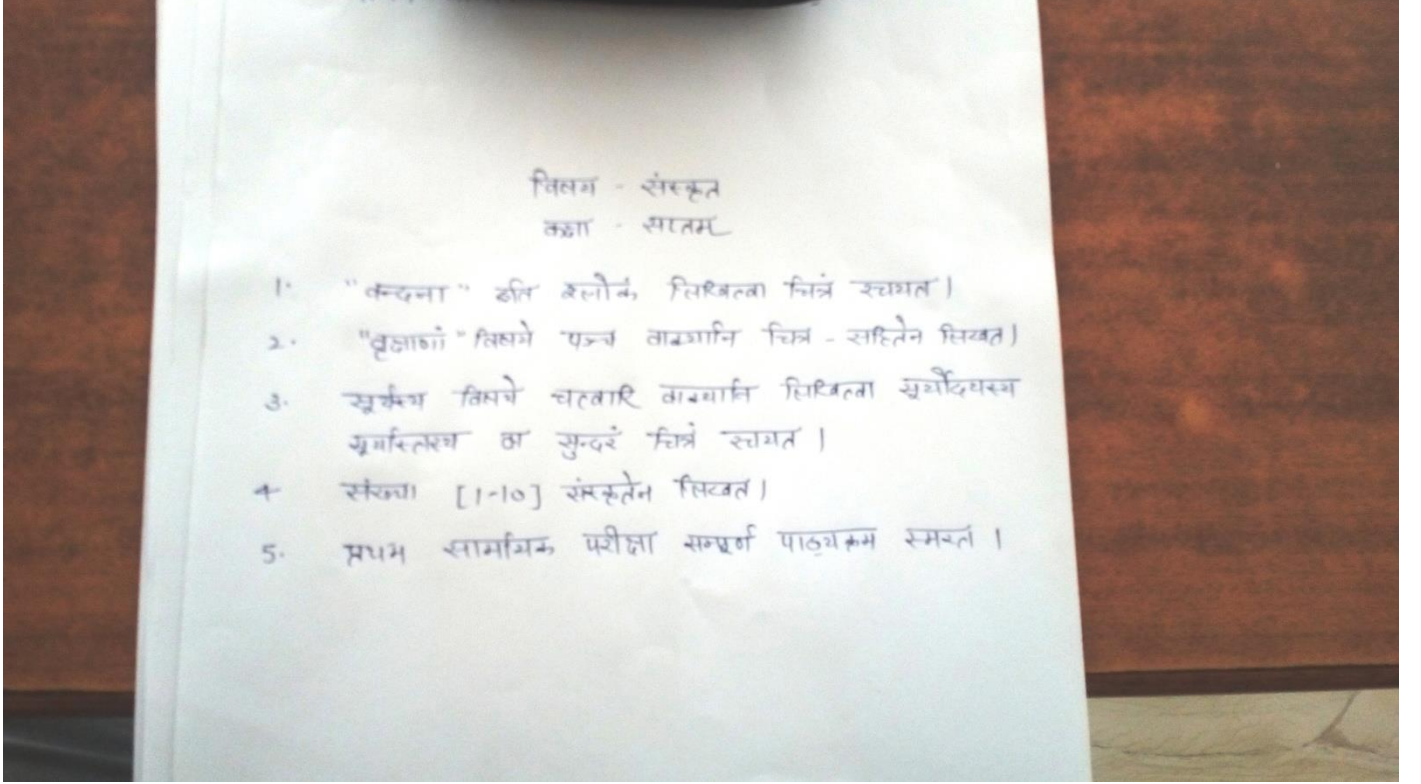 विषय - संस्कृत
कक्षा - सातम
1. "वन्दना" इति श्लोकं लिखित्वा चित्रं रचयत ।
2. "वृक्षाणां" विषये पञ्च वाक्यानि चित्र - सहितेन लिखत ।
3. सूर्यस्य विषये चत्वारि वाक्यानि लिखित्वा सूर्योदयस्य
सूर्यास्तस्य वा सुन्दरं चित्रं रचयत ।
4 संख्या [1-10] संस्कृतेन लिखत ।
5. प्रथम सामयिक परीक्षा सम्पूर्ण पाठ्यक्रम स्मरत ।